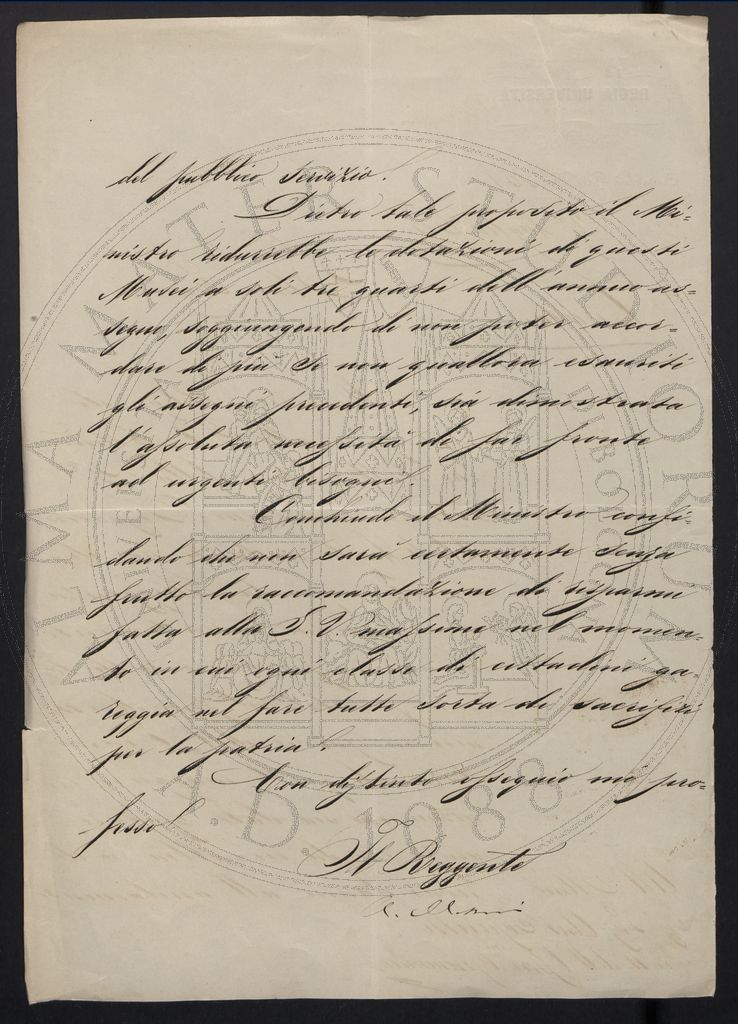 del pubblico servizio.
Dietro tale proposito il Mi=
nistro ridurrebbe le dotazioni di questi
Musei a soli tre quarti dell'annuo as=
segno, soggiungendo di non poter accor=
dare di più se non quallora esauriti
gli assegni precedenti, sia dimostrata
l'assoluta necessità di far fronte
ad urgenti bisogni.
Conchiude il Ministro confi=
dando che non sarà certamente senza
frutto la raccomandazione di risparmi
fatta alla S. V. massime nel momen=
to in cui ogni classe di cittadini ga=
reggia nel fare tutte sorta di sacrifizi
per la patria.
Con distinto ossequio mi pro=
fesso
Il Reggente
ALMA MATER STUDIORUM
A.D. 1088
REGIA UNIVERSITÀ